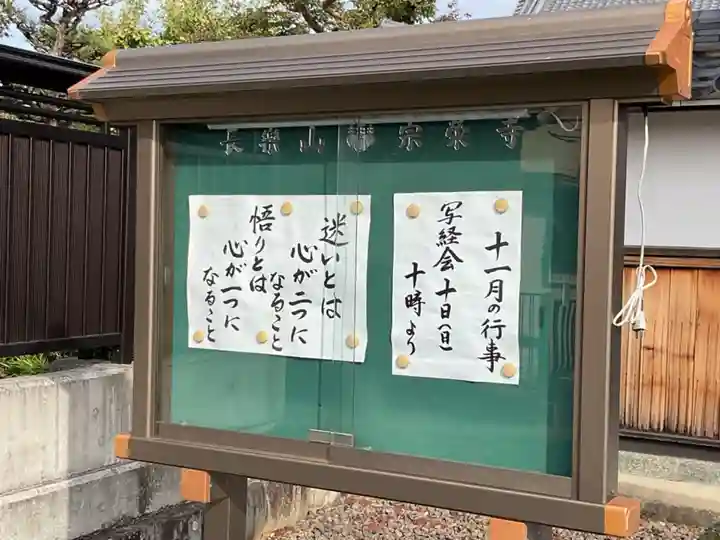 長樂山禅宗藥寺
十一月の行事
写経会 十日(日)
十時より
迷いとは
心が二つに
なること
悟りとは
心が一つに
なること